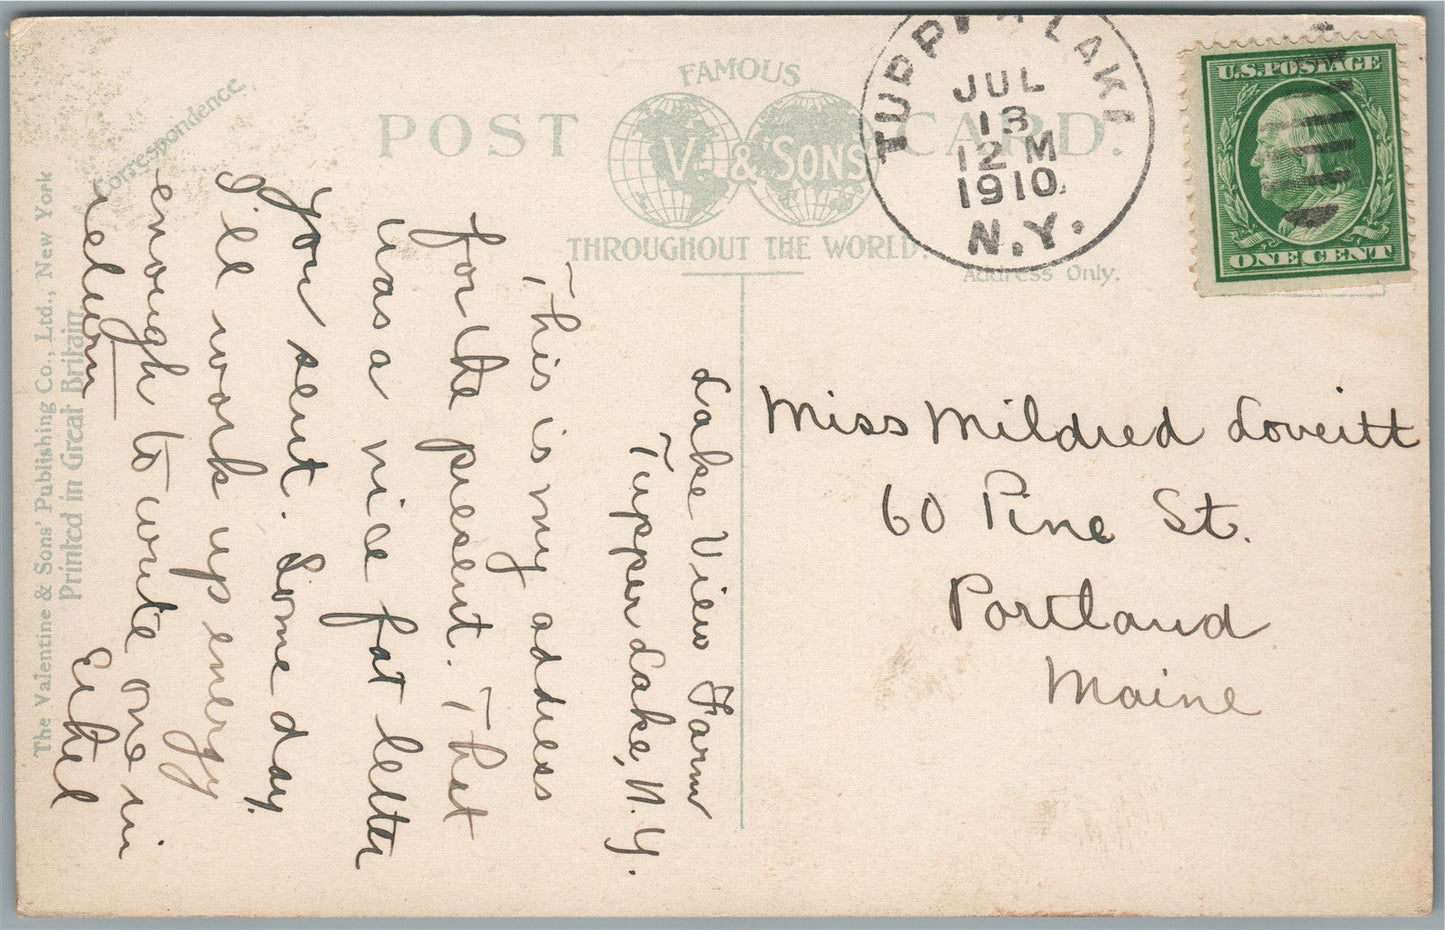 Correspondence
POST CARD.
FAMOUS
V. & SONS
THROUGHOUT THE WORLD.
Address Only.
TUPPER LAKE
JUL
13
12 M
1910
N.Y.
U.S. POSTAGE
ONE CENT
Lake View Farm
Tupper Lake, N.Y.
This is my address
for the present. That
was a nice fat letter
you sent. Some day
I'll work up energy
enough to write one in
return
Ethel
Miss Mildred Loveitt
60 Pine St.
Portland
Maine
The Valentine & Sons' Publishing Co., Ltd., New York
Printed in Great Britain.